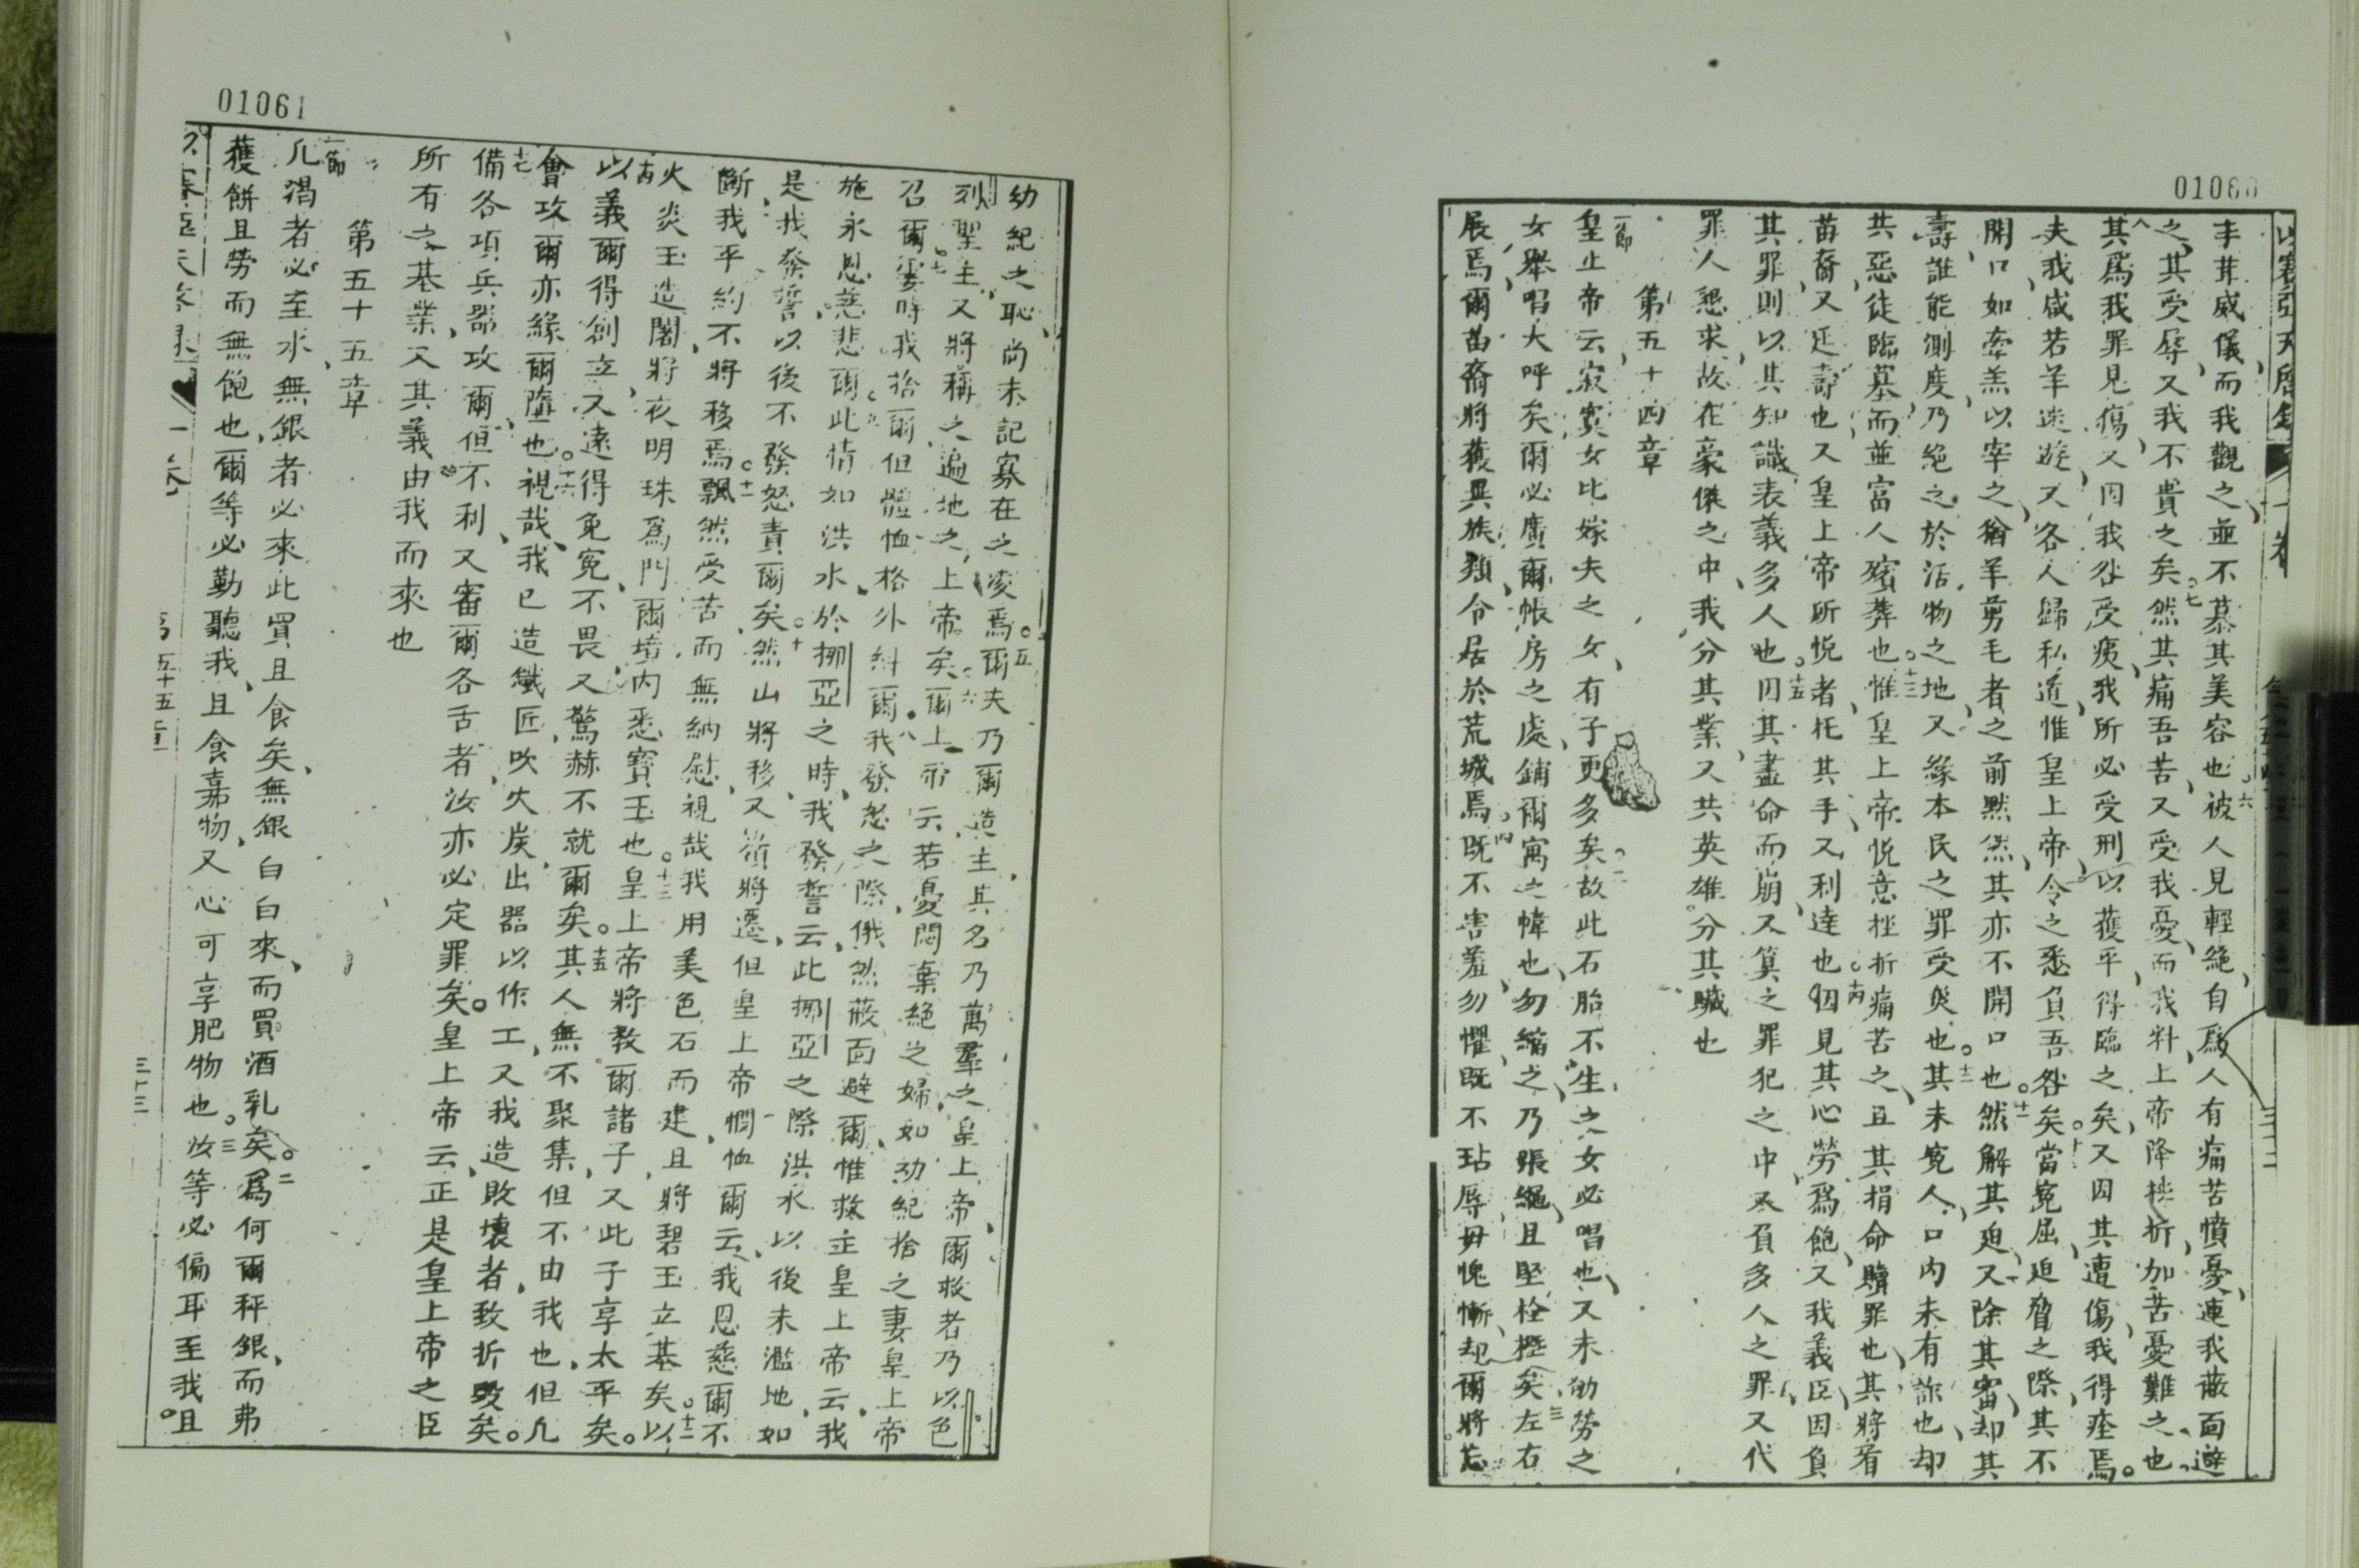 01060
丰茸威儀而我觀之並不慕其美容也六被人見輕絕自為人有痛苦憤憂連我蔽面避
之其受辱又我不貴之矣七然其痛吾苦又受我憂而我料上帝降挫折加苦憂難之也
其為我罪見傷又因我咎受痍我所必受刑以獲平得臨之矣又因其遭傷我得痊焉
夫我咸若羊迷遊又各人歸私道惟皇上帝令之悉負吾咎矣當寃屈迫脅之際其不
開口如牽羔以宰之猶羊剪毛者之前默然其亦不開口也十一然解其迫又除其審却其
壽誰能測度乃絕之於活物之地又緣本民之罪受災也十二其未寃人口內未有詐也却
共惡徒臨墓而並富人殯葬也十三惟皇上帝悅意挫折痛苦之且其捐命贖罪也其將看
苗裔又延壽也又皇上帝所悅者托其手又利達也十四因見其心勞為飽又我義臣因負
其罪則以其知識表義多人也十五因其盡命而崩又算之罪犯之中又負多人之罪又代
罪人懇求故在豪傑之中我分其業又共英雄分其贓也
第五十四章
一節
皇上帝云寂寞女比嫁夫之女有子更多矣二故此石胎不生之女必唱也又未劬勞之
女舉唱大呼矣爾必廣爾帳房之處鋪爾寓之幃也勿縮之乃張繩且堅栓橛矣三左右
展焉爾苗裔將獲異族類令居於荒城焉四既不害羞勿懼既不玷辱毋愧慚却爾將忘
01061
幼紀之恥尚未記寡在之凌焉五爾夫乃爾造主其名乃萬羣之皇上帝爾救者乃以色
列聖主又將稱之遍地之上帝矣六爾上帝云若憂悶棄絕之婦如幼紀捨之妻皇上帝
召爾七霎時我捨爾但體恤格外糾爾八我發怒之際俄然蔽面避爾惟救主皇上帝云我
施永恩慈悲爾此情如洪水於挪亞之時我發誓云此挪亞之際洪水以後未濫地如
是我發誓以後不發怒責爾矣十然山將移又嶺將遷但皇上帝憫恤爾云我恩慈爾不
斷我平約不將移焉十一飄然受苦而無納慰視哉我用美色石而建且將碧玉立基矣十二以
火炎玉造閣將夜明珠為門爾境內悉寶玉也十三皇上帝將教爾諸子又此子享太平矣
十四以義爾得創立又遠得免寃不畏又驚赫不就爾矣十五其人無不聚集但不由我也但凡
會攻爾亦緣爾墮也十六視哉我已造鐵匠吹火炭出器以作工又我造敗壞者致折毀矣
十七備各項兵器攻爾但不利又審爾各舌者汝亦必定罪矣皇上帝云正是皇上帝之臣
所有之基業又其義由我而來也
第五十五章
一節
凡渴者必至水無銀者必來此買且食矣無銀白白來而買酒乳矣二為何爾秤銀而弗
獲餅且勞而無飽也爾等必勤聽我且食嘉物又心可享肥物也三汝等必偏耳至我且
第五十五章
三十三